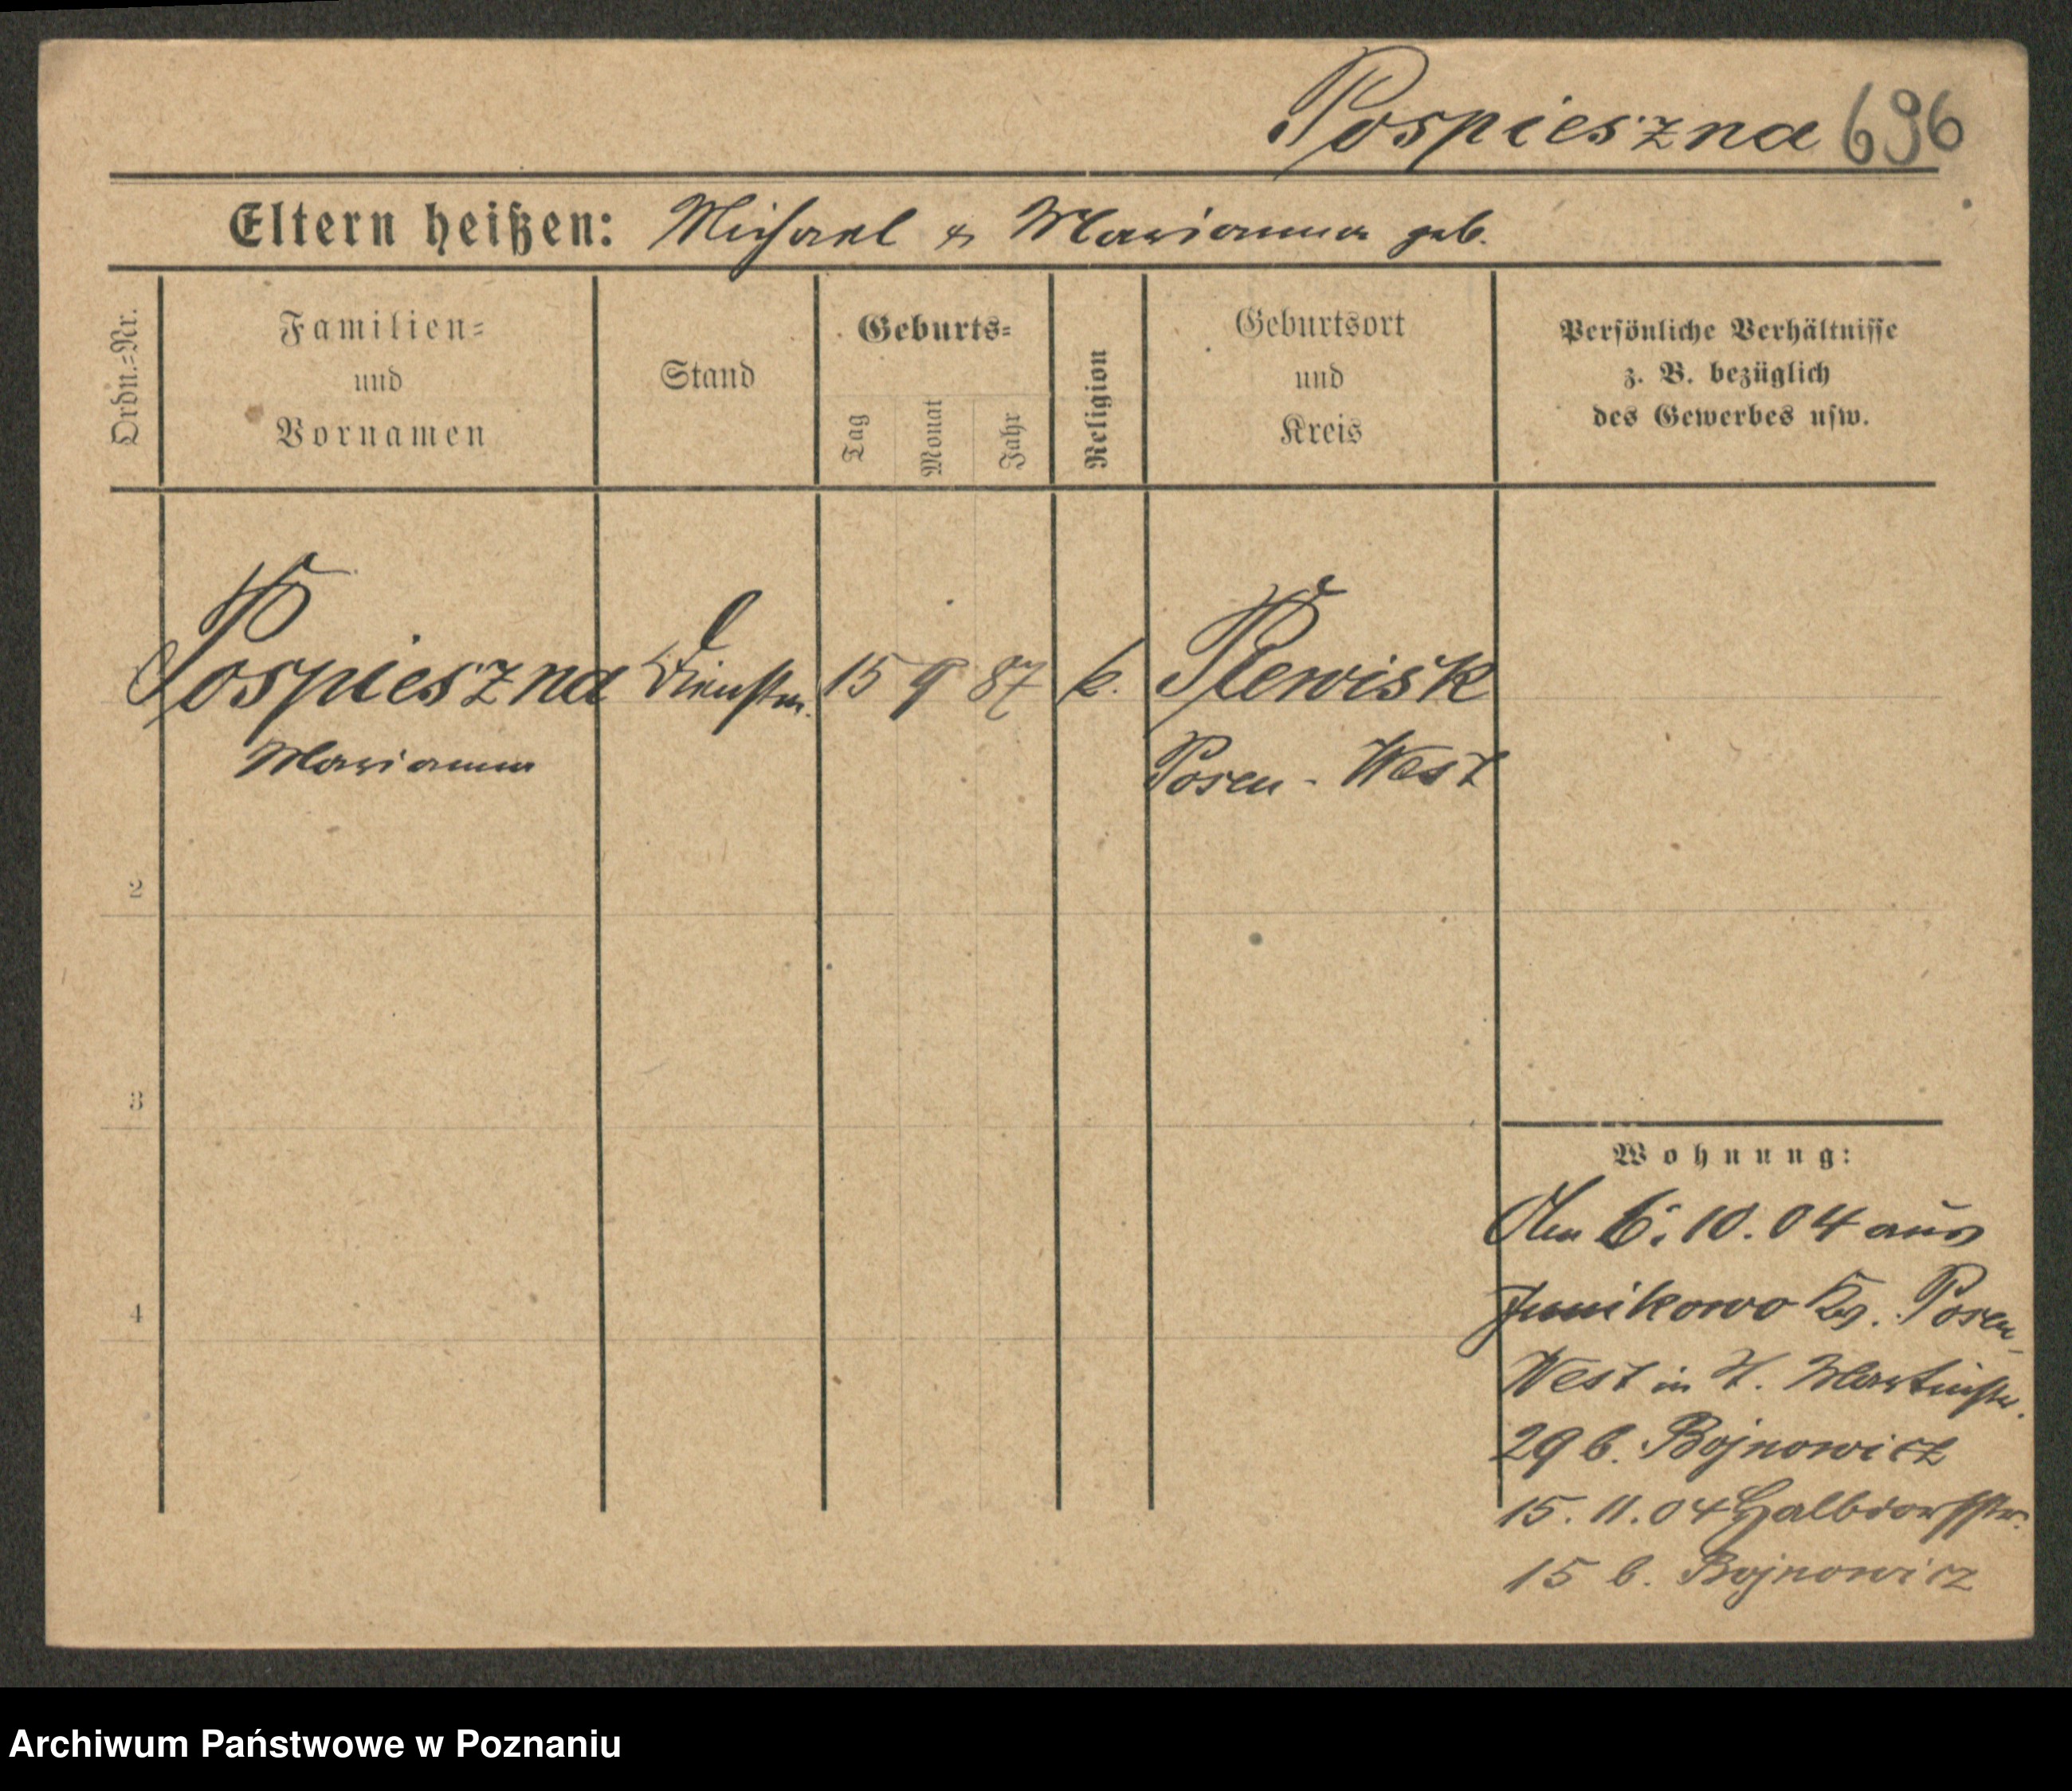 Pospieszna 696
Eltern heißen: Michael & Marianna geb.
Ordn.=Nr.
Familien=
und
Vornamen
Stand
Geburts=
Tag
Monat
Jahr
Religion
Geburtsort
und
Kreis
Persönliche Verhältnisse
z. B. bezüglich
des Gewerbes usw.
Pospieszna Dienstm. 15 9 87 k. Plewisk
Marianna Posen - West
2
3
4
Wohnung:
Am 6. 10. 04 aus
Junikowo Kr. Posen-
West in St. Martinstr.
29 b. Bojnowicz
15. 11. 04 Halbdorfstr.
15 b. Bojnowicz
Archiwum Państwowe w Poznaniu